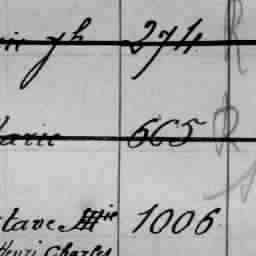 274 R
arie 665 R
stave Mie 1006
Henri Charles